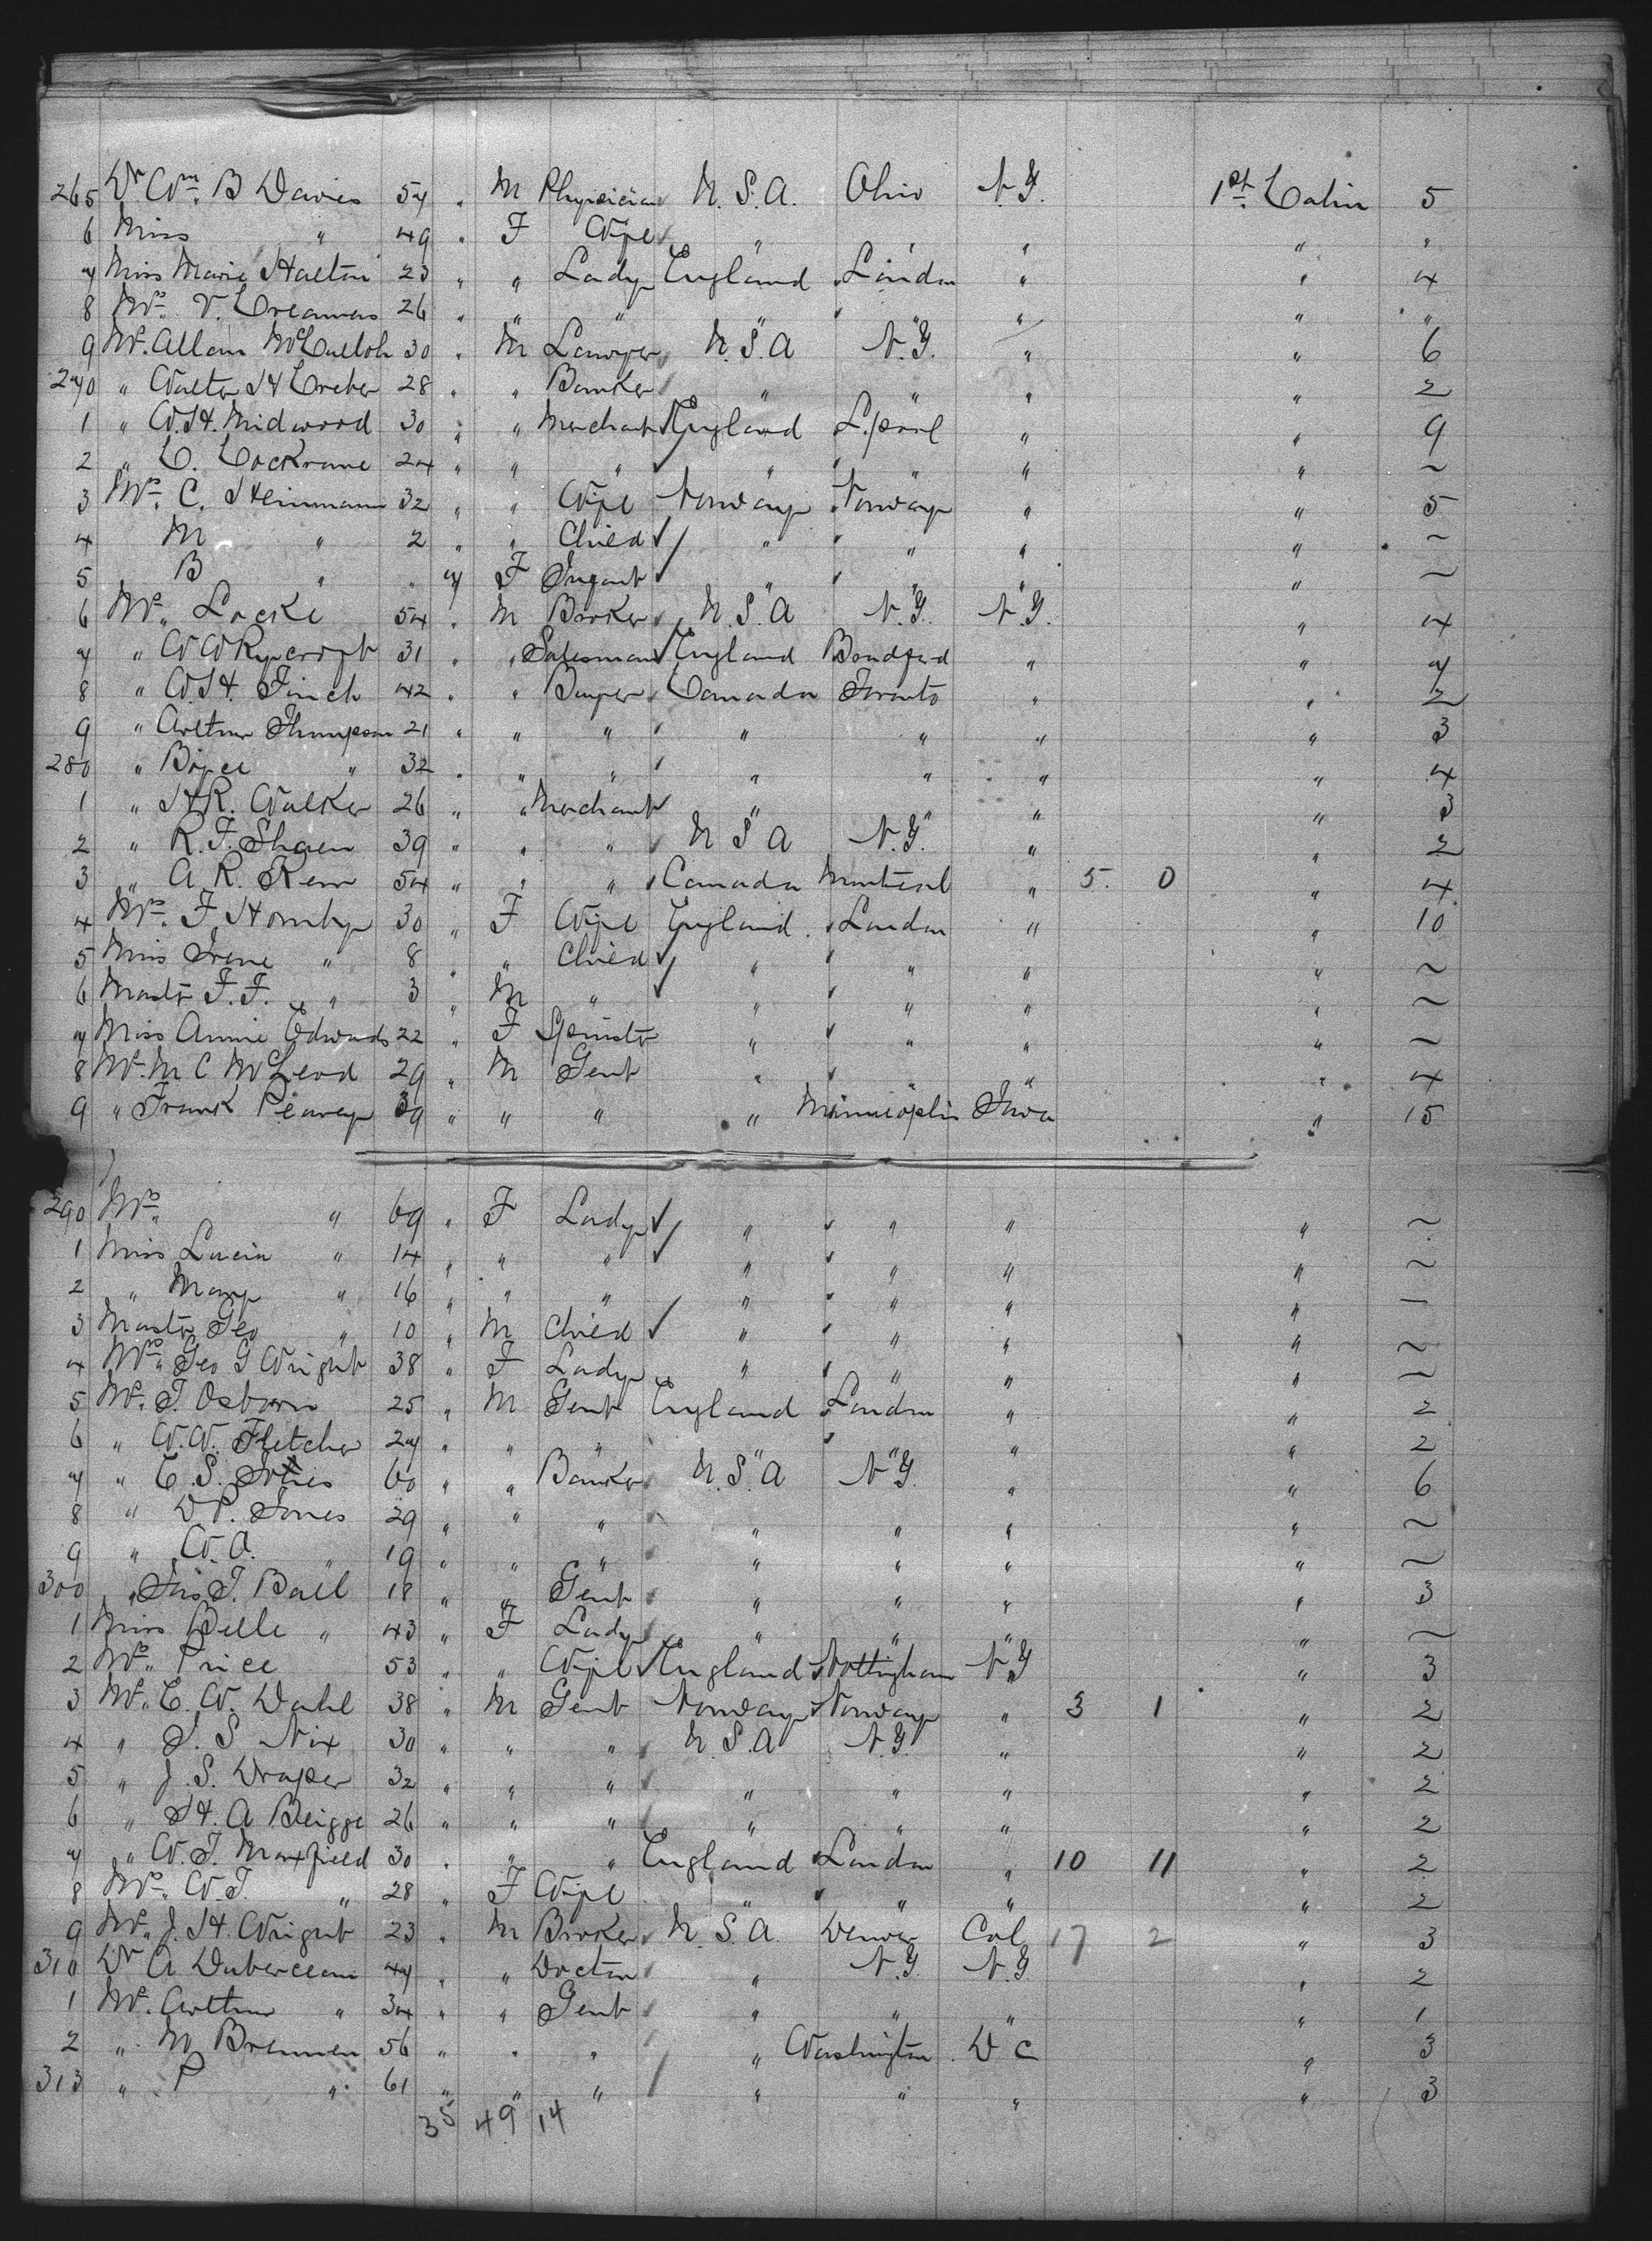 265 Dr Wm. B Davies 54 " M Physician U.S.A. Ohio N.Y. 1st Cabin 5
6 Miss " 49 " F Wife " " " " "
7 Miss Marie Halton 23 " " Lady England London " " 4
8 Mrs. V. Creamers 26 " " " " " " " "
9 Mr. Allan McCulloh 30 " M Lawyer U.S.A N.Y. " " 6
270 " Walter H 28 " " Banker " " " " 2
1 " W.H. Midwood 30 " " Merchant England L.pool " " 9
2 " C. Cockrane 24 " " " " " " " ~
3 Mrs. C. Steinmann 32 " " Wife Norway Norway " " 5
4 M " 2 " " Child " " " " ~
5 B " " 7 F Infant " " " " ~
6 Mr. Locke 54 " M Broker U.S.A N.Y. N.Y. " 4
7 " W W Rycroft 31 " " Salesman England Bradford " " 7
8 " W.H. Finch 42 " " Buyer Canada Toronto " " 2
9 " Arthur Thompson 21 " " " " " " " 3
280 " Boyce " 32 " " " " " " " 4
1 " H R. Walker 26 " " Merchant " " " " 3
2 " R.F. Shaen 39 " " " U S A N.Y. " " 2
3 " A R. Kerr 54 " " " Canada Montreal " 5. 0 " 4
4 Mrs. F Hornby 30 " F Wife England London " " 10
5 Miss Irene " 8 " " Child " " " " ~
6 Mastr F.F. " 3 " M " " " " " ~
7 Miss Annie Edwards 22 " F Spinstr " " " " ~
8 Mr. M C McLeod 29 " M Gent " " " " 4
9 " Frank Peavey 39 " " " " Minneaplis Iowa " 15
290 Mrs. " 69 " F Lady " " " " ~
1 Miss Lucia " 14 " " " " " " " ~
2 " Mary " 16 " " " " " " " ~
3 Mastr Geo " 10 " M Child " " " " ~
4 Mrs. Geo G Wright 38 " F Lady " " " " ~
5 Mr. T. Osborn 25 " M Gent England London " " 2
6 " W.W. Fletcher 27 " " " " " " " 2
7 " C. S. 60 " " Banker U.S.A N.Y. " " 6
8 " D P. Jones 29 " " " " " " " ~
9 " W. O. " 19 " " " " " " " ~
300 " Jas T. Ball 18 " " Gent " " " " 3
1 Miss Belle " 43 " F Lady " " " " ~
2 Mrs. Price 53 " " Wife England Nottingham N.Y " 3
3 Mr. C. W. Dahl 38 " M Gent Norway Norway " 3 1 " 2
4 " J. S Nix 30 " " " U.S.A N.Y. " " 2
5 " J. S. Draper 32 " " " " " " " 2
6 " H. A Beigge 26 " " " " " " " 2
7 " W. T. Maxfield 30 " " " England London " 10 11 " 2
8 Mrs. W. T. " 28 " F Wife " " " " 2
9 Mr. J. H. Wright 23 " M Broker U.S.A. Denver Col 17 2 " 3
310 Dr A 47 " " Doctor " N.Y. N.Y " 2
1 Mr. Arthur " 34 " " Gent " " " " 1
2 " M Brennen 56 " " " " Washington D C " 3
313 " P " 61 " " " " " " " 3
35 49 14